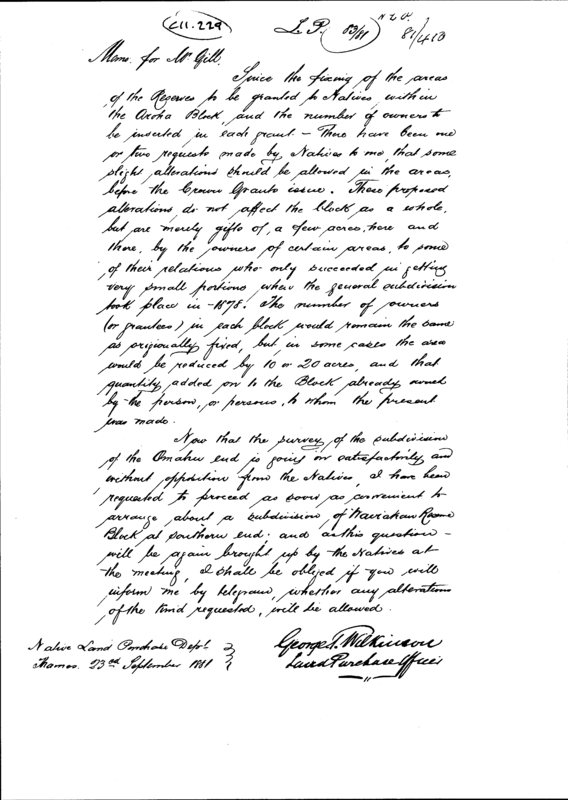 C11.229
L.P. 83/81
N.L.P. 81/413
Memo. for Mr Gill.
Since the fixing of the areas
of the Reserves to be granted to Natives, within
the Aroha Block, and the number of owners to
be inserted in each grant – There have been one
or two requests made by Natives to me, that some
slight alterations should be allowed in the areas,
before the Crown Grants issue. These proposed
alterations, do not affect the block as a whole,
but are merely gifts of, a few acres, here and
there, by the owners of certain areas, to some
of their relations who only succeeded in getting
very small portions when the general subdivision
took place in – 1878. The number of owners
(or grantees) in each block would remain the same
as originally fixed, but, in some cases the area
would be reduced by 10 or 20 acres, and that
quantity added on to the Block already owned
by the person, or persons, to whom the present
was made.
Now that the survey of the subdivision
of the Omahu end is going on satisfactorily and
without opposition from the Natives, I have been
requested to proceed as soon as convenient to
arrange about a subdivision of Wairakau Reserve
Block at southern end; and as this question –
will be again brought up by the Natives at
the meeting, I shall be obliged if you will
inform me by telegram, whether any alterations
of the kind requested, will be allowed.
George T. Wilkinson
Land Purchase Officer
Native Land Purchase Dept.
Thames. 23rd September 1881